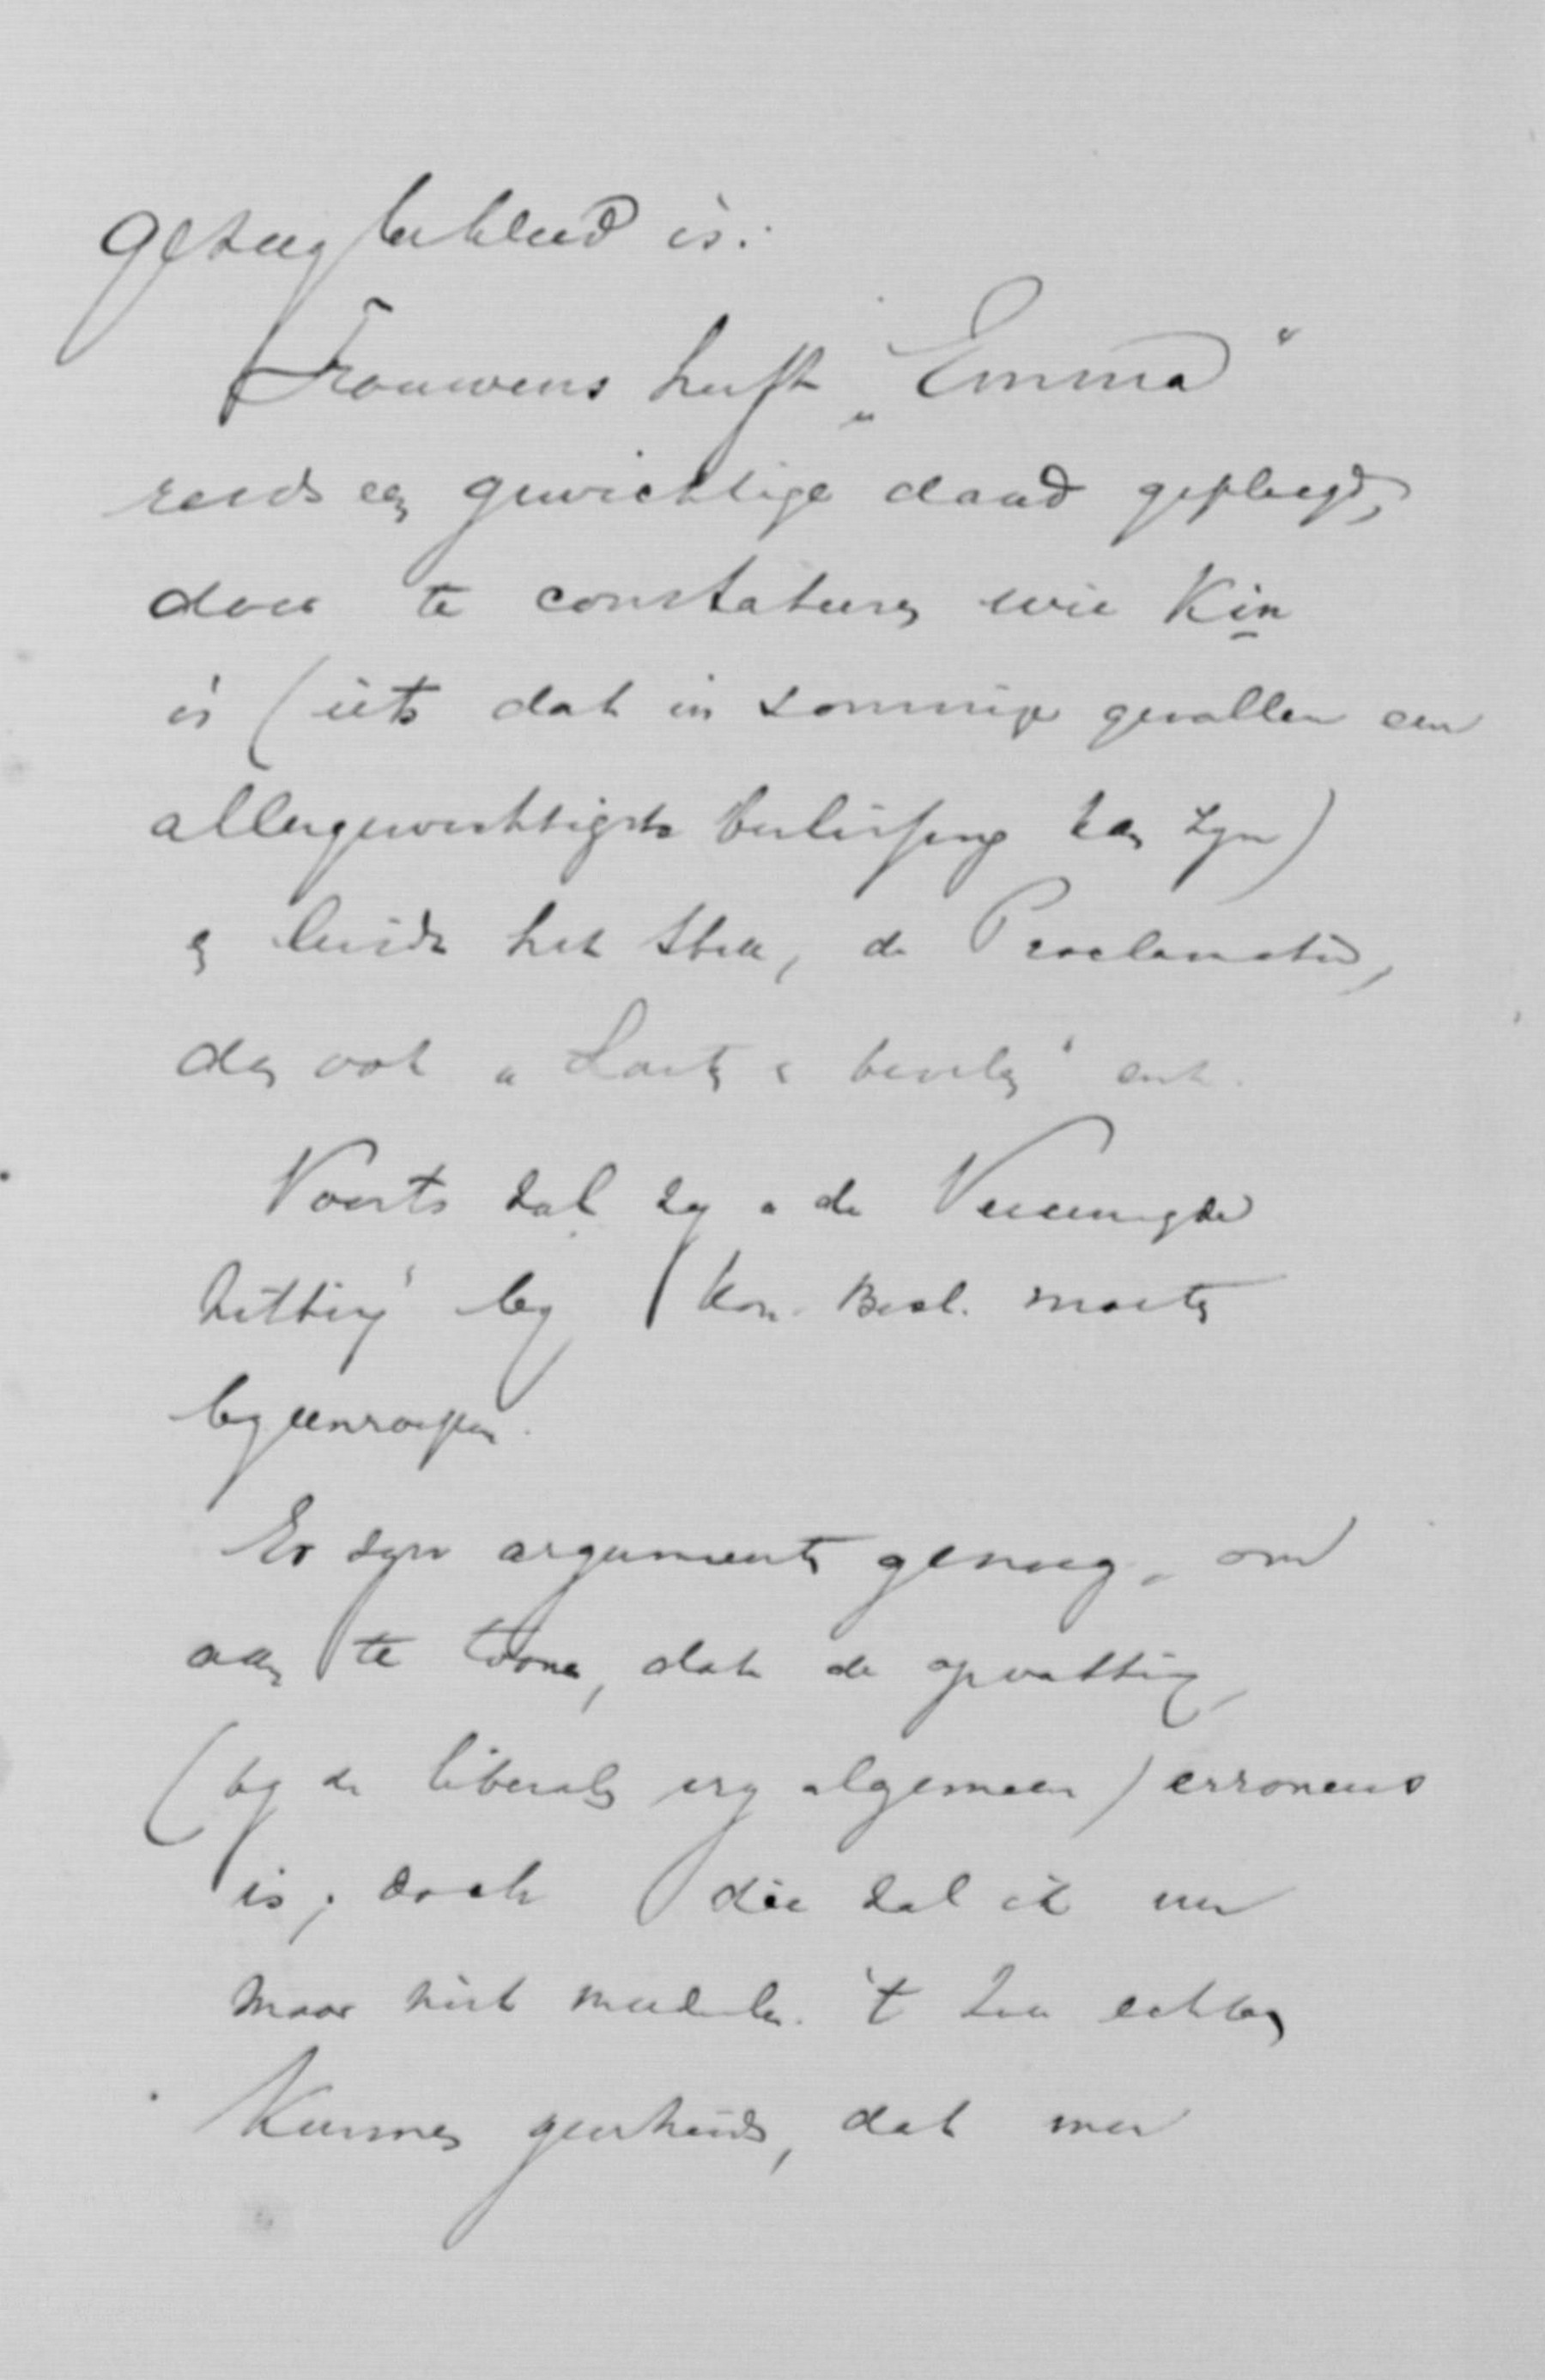 gezag bekleed is.
Trouwens heeft „Emma"
reeds een gewichtige daad gepleegd,
door te constateeren wie Kin
is (iets dat in sommige gevallen een
allergewichtigste beslissing kan zyn)
en luidt het stuk, de Proclamatie,
dan ook „Lasten & bevelen"
Voorts zal zy „de Vereenigde
Zitting" by Kon. Besl. moeten
byeenroepen.
Er zyn argumenten genoeg, om
aan te toonen, dat de opvatting,
(by de liberalen erg algemeen) erroneus
is; doch die zal ik nu
maar niet meedeelen. 't zou echter
kunnen gebeuren, dat men